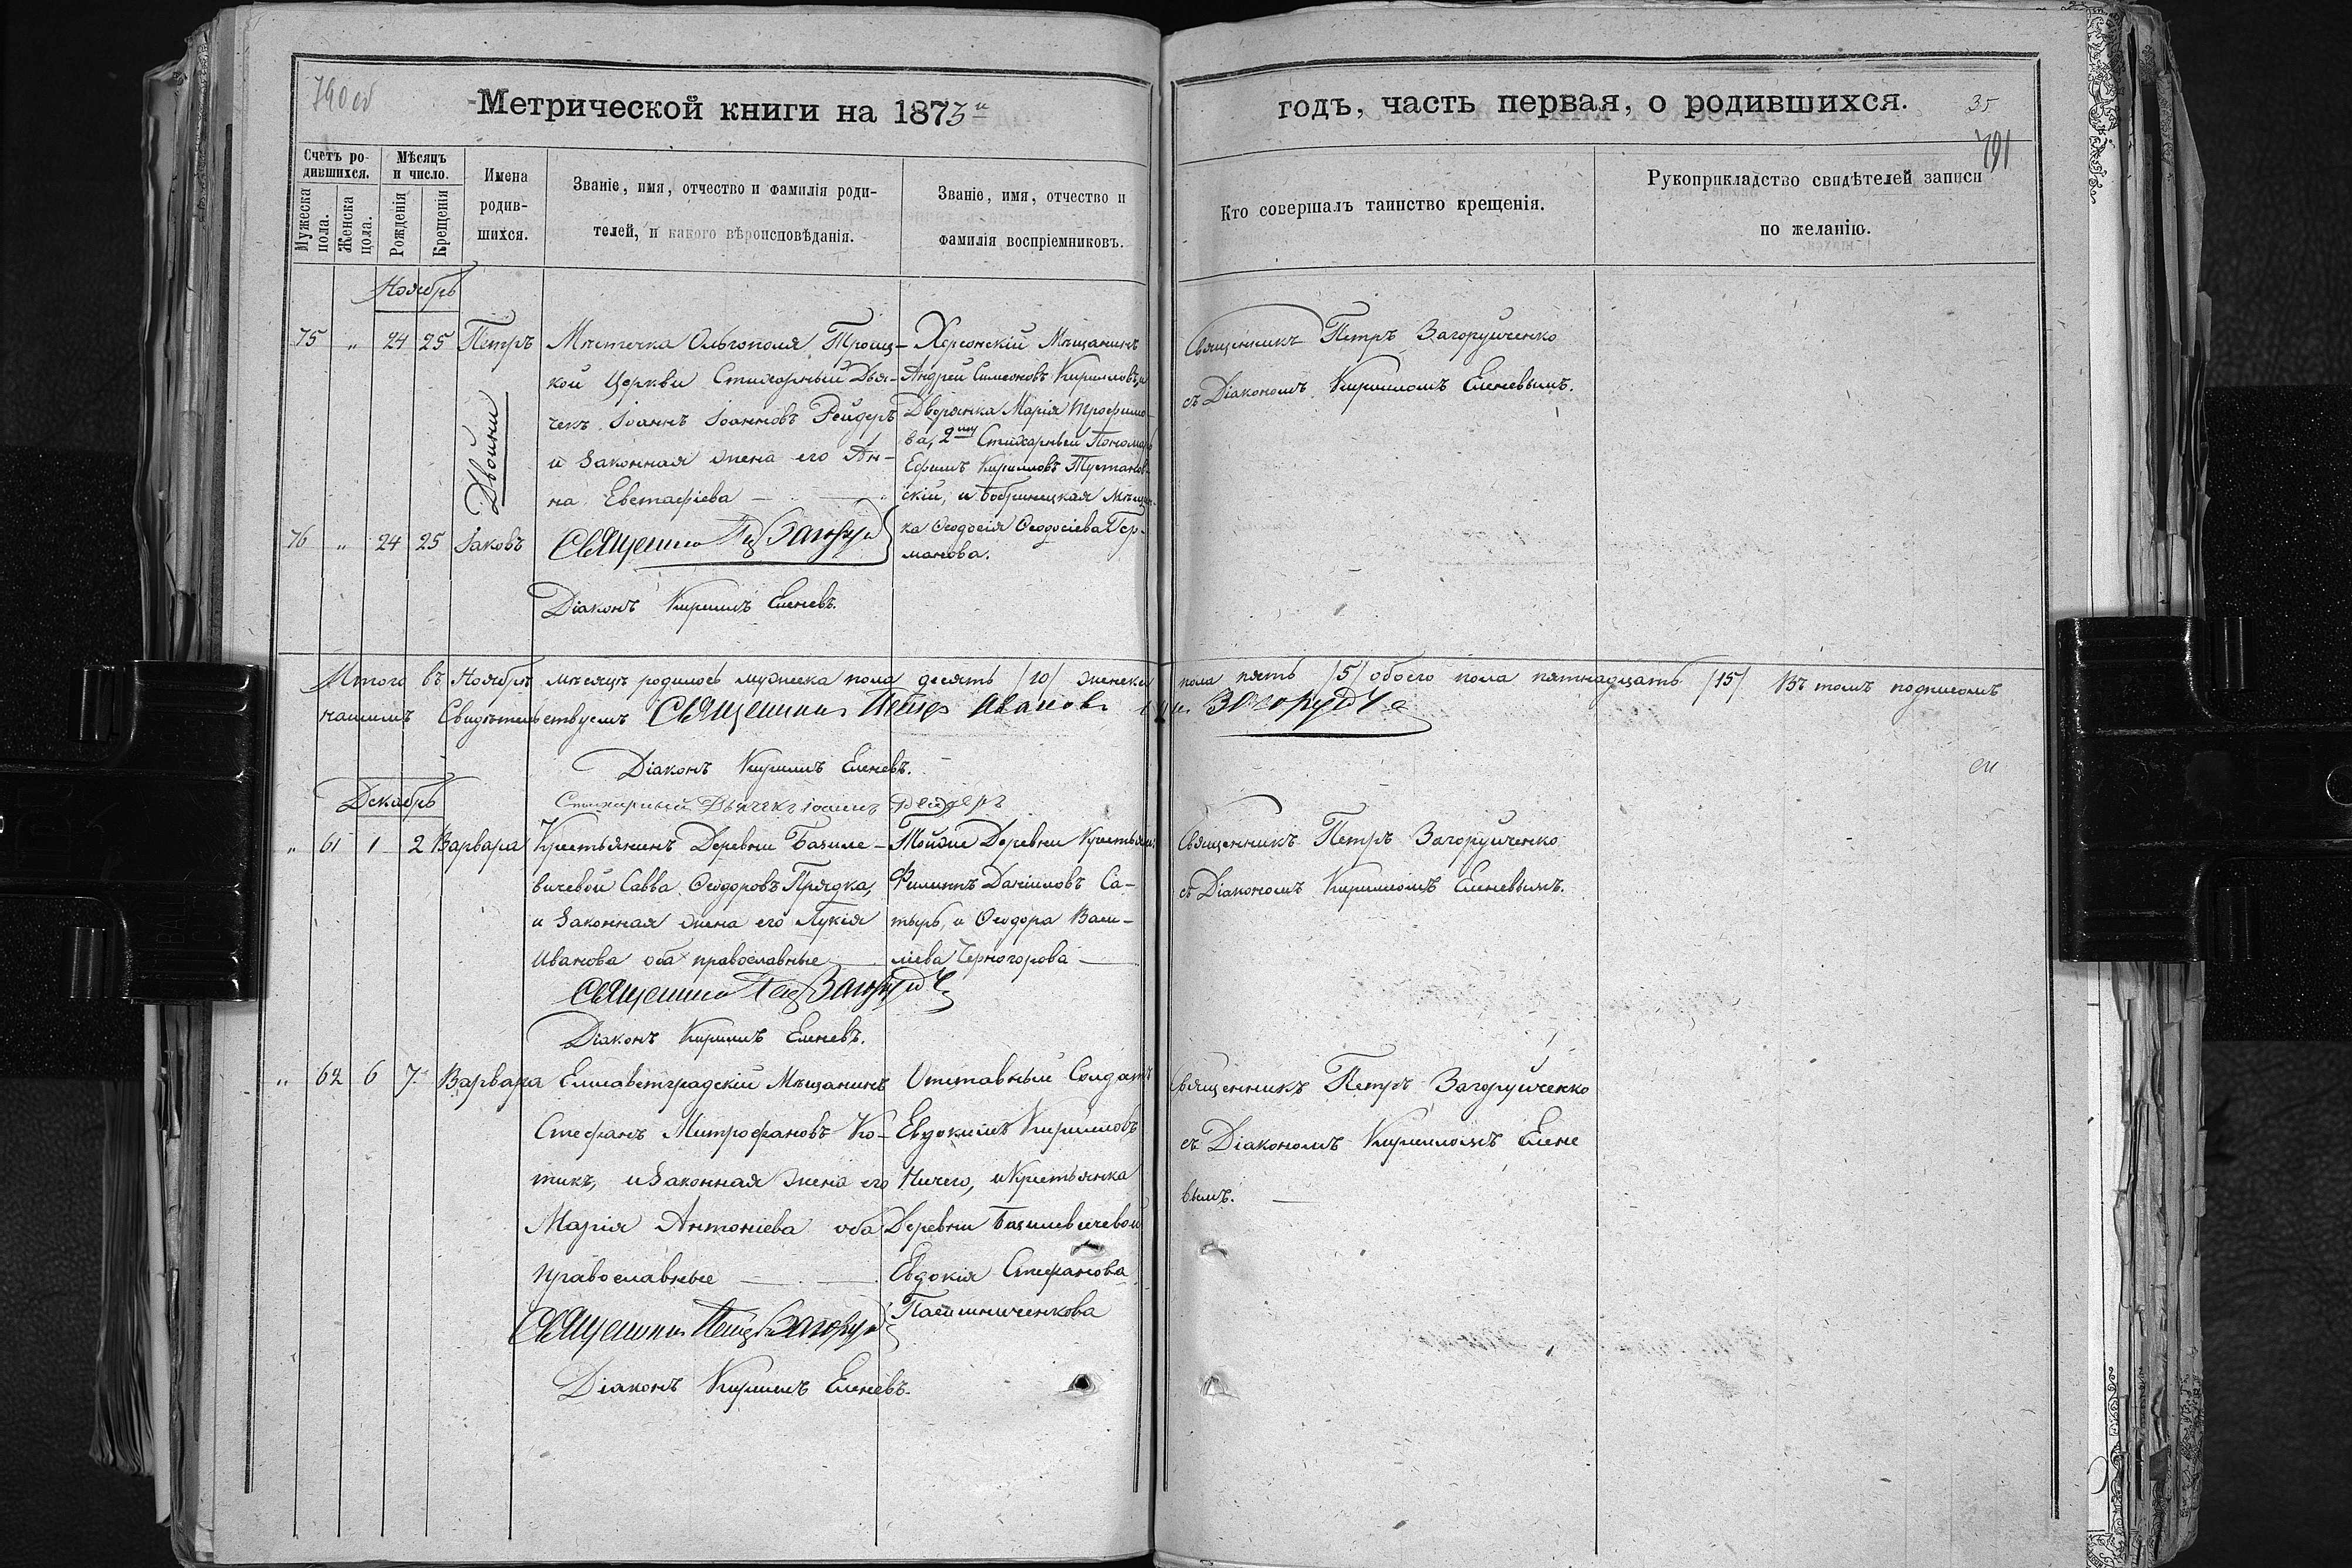 740 об
Метрической книги на 1873й
годъ, часть первая, о родившихся.
35
791
Счетъ ро-
дившихся.
Мужеска
пола.
Женска
пола.
Мѣсяцъ
и число.
Рожденія
Крещенія
Имена
родив-
шихся.
Званіе, имя, отчество и фамилія роди-
телей, и какого вѣроисповѣданія.
Званіе, имя, отчество и
фамилія воспріемниковъ.
Кто совершалъ таинство крещенія.
Рукоприкладство свидѣтелей записи
по желанію.
Ноябрь
75 " 24 25 Петръ
Двойни
76 " 24 25 Іаковъ
Мѣстечка Ольгополя Троиц-
кой Церкви Стихарный Дья-
чекъ Іоаннъ Іоанновъ Рейдеръ
и Законная жена его Ан-
на Евстафіева
Священникъ Петръ
Діаконъ Кириллъ Еленевъ.
Херсонскій Мѣщанинъ
Андрей Симеоновъ Кирилловъ, и
Дворянка Марія Трофимо-
ва, 2му Стихарный Пономарь
Ефимъ Кирилловъ Тустанов-
скій, и Бобринецкая Мѣщан-
ка Ѳеодосія Ѳеодосіева Гер-
манова.
Священникъ Петръ Загоруйченко
съ Діакономъ Кирилломъ Еленевымъ.
Итого въ Ноябрѣ мѣсяцѣ родилось мужеска пола десять /10/ женска пола пять /5/ обоего пола пятнадцать /15/ Въ томъ подписомъ
нашимъ Свидѣтельствуемъ Священникъ Петръ Иванов
Діаконъ Кириллъ Еленевъ.
Стихарный Дьячекъ Іоаннъ Рейдеръ
Декабрь
" 61 1 2 Варвара
Крестьянинъ Деревни Базиле-
вичевой Савва Ѳеодоровъ Прядка,
и Законная жена его Лукія
Иванова оба православные
Священникъ Петръ
Діаконъ Кириллъ Еленевъ.
Тойже Деревни Крестьян.
Филиппъ Даніиловъ Са-
тыръ, и Ѳеодора Васи-
ліева Черногорова
Священникъ Петръ Загоруйченко
съ Діакономъ Кирилломъ Еленевымъ.
" 62 6 7. Варвара
Елисаветградскій Мѣщанинъ
Стефанъ Митрофановъ Ко-
тикъ, и Законная жена его
Марія Антоніева оба
православные
Священникъ Петръ
Діаконъ Кириллъ Еленевъ.
Отставный Солдатъ
Евдокимъ Кирилловъ
Ничего, и Крестьянка
Деревни Базилевичевой
Евдокія Стефанова
Пасишниченкова
Священникъ Петръ Загоруйченко
съ Діакономъ Кирилломъ Елене
вымъ.